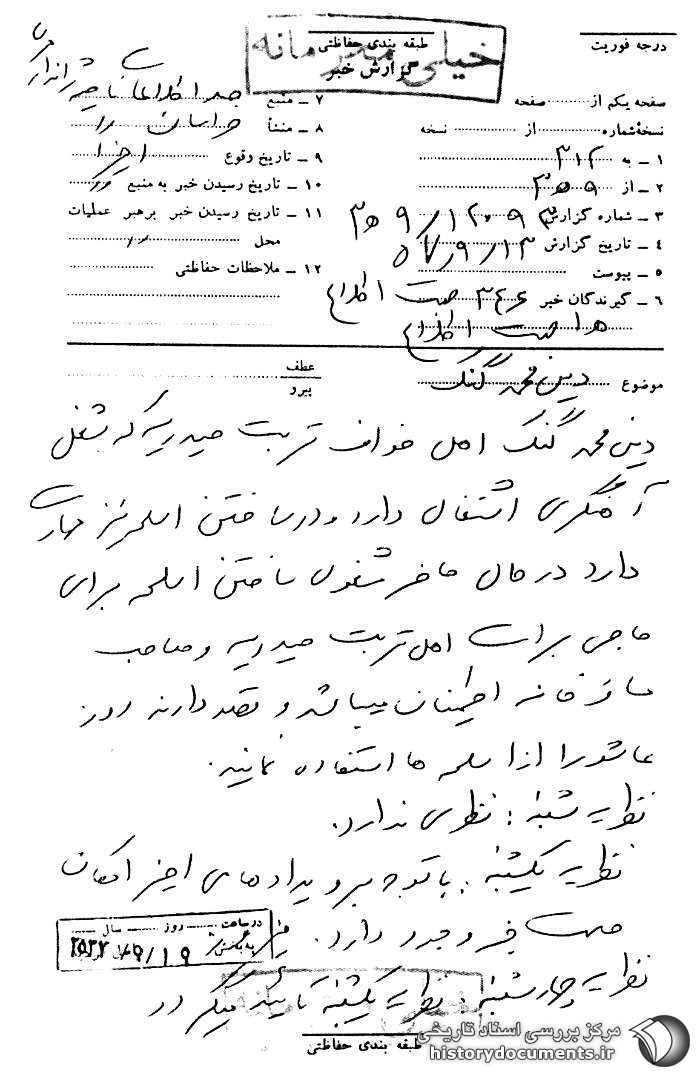 درجه فوریت
طبقه بندی حفاظتی
خیلی محرمانه
گزارش خبر
صفحه یکم از صفحه
نسخهٔ شماره از نسخه
۱ ـ به ۳۱۲
۲ ـ از ۳۵۹
۳ ـ شماره گزارش
۴ ـ تاریخ گزارش ۵۷/۹/۱۳
۵ ـ پیوست
۶ ـ گیرندگان خبر ۳۴۶ جهت اطلاع
هـ۱ جهت اطلاع
۷ ـ منبع
۸ ـ منشأ خراسان ۱۰
۹ ـ تاریخ وقوع اخیرا
۱۰ ـ تاریخ رسیدن خبر به منبع
۱۱ ـ تاریخ رسیدن خبر برهبر عملیات
محل
۱۲ ـ ملاحظات حفاظتی
موضوع دین محمد گنگ
عطف
پیرو
دین محمد گنگ اهل خواف تربت حیدریه که بشغل
آهنگری اشتغال دارد و در ساختن اسلحه نیز مهارت
دارد در حال حاضر مشغول ساختن اسلحه برای
حاجی برات اهل تربت حیدریه و صاحب
مسافرخانه اطمینان میباشد و قصد دارند روز
عاشورا از اسلحه ها استفاده نمایند.
نظریه شنبه: نظری ندارد.
نظریه یکشنبه: با توجه برویدادهای اخیر امکان
صحت خبر وجود دارد.
در ساعت روز سال
به بخش
۲۵۳۷/۹/۱۹
نظریه چهارشنبه: نظریه یکشنبه تأیید میگردد
طبقه بندی حفاظتی
مرکز بررسی اسناد تاریخی
historydocuments.ir